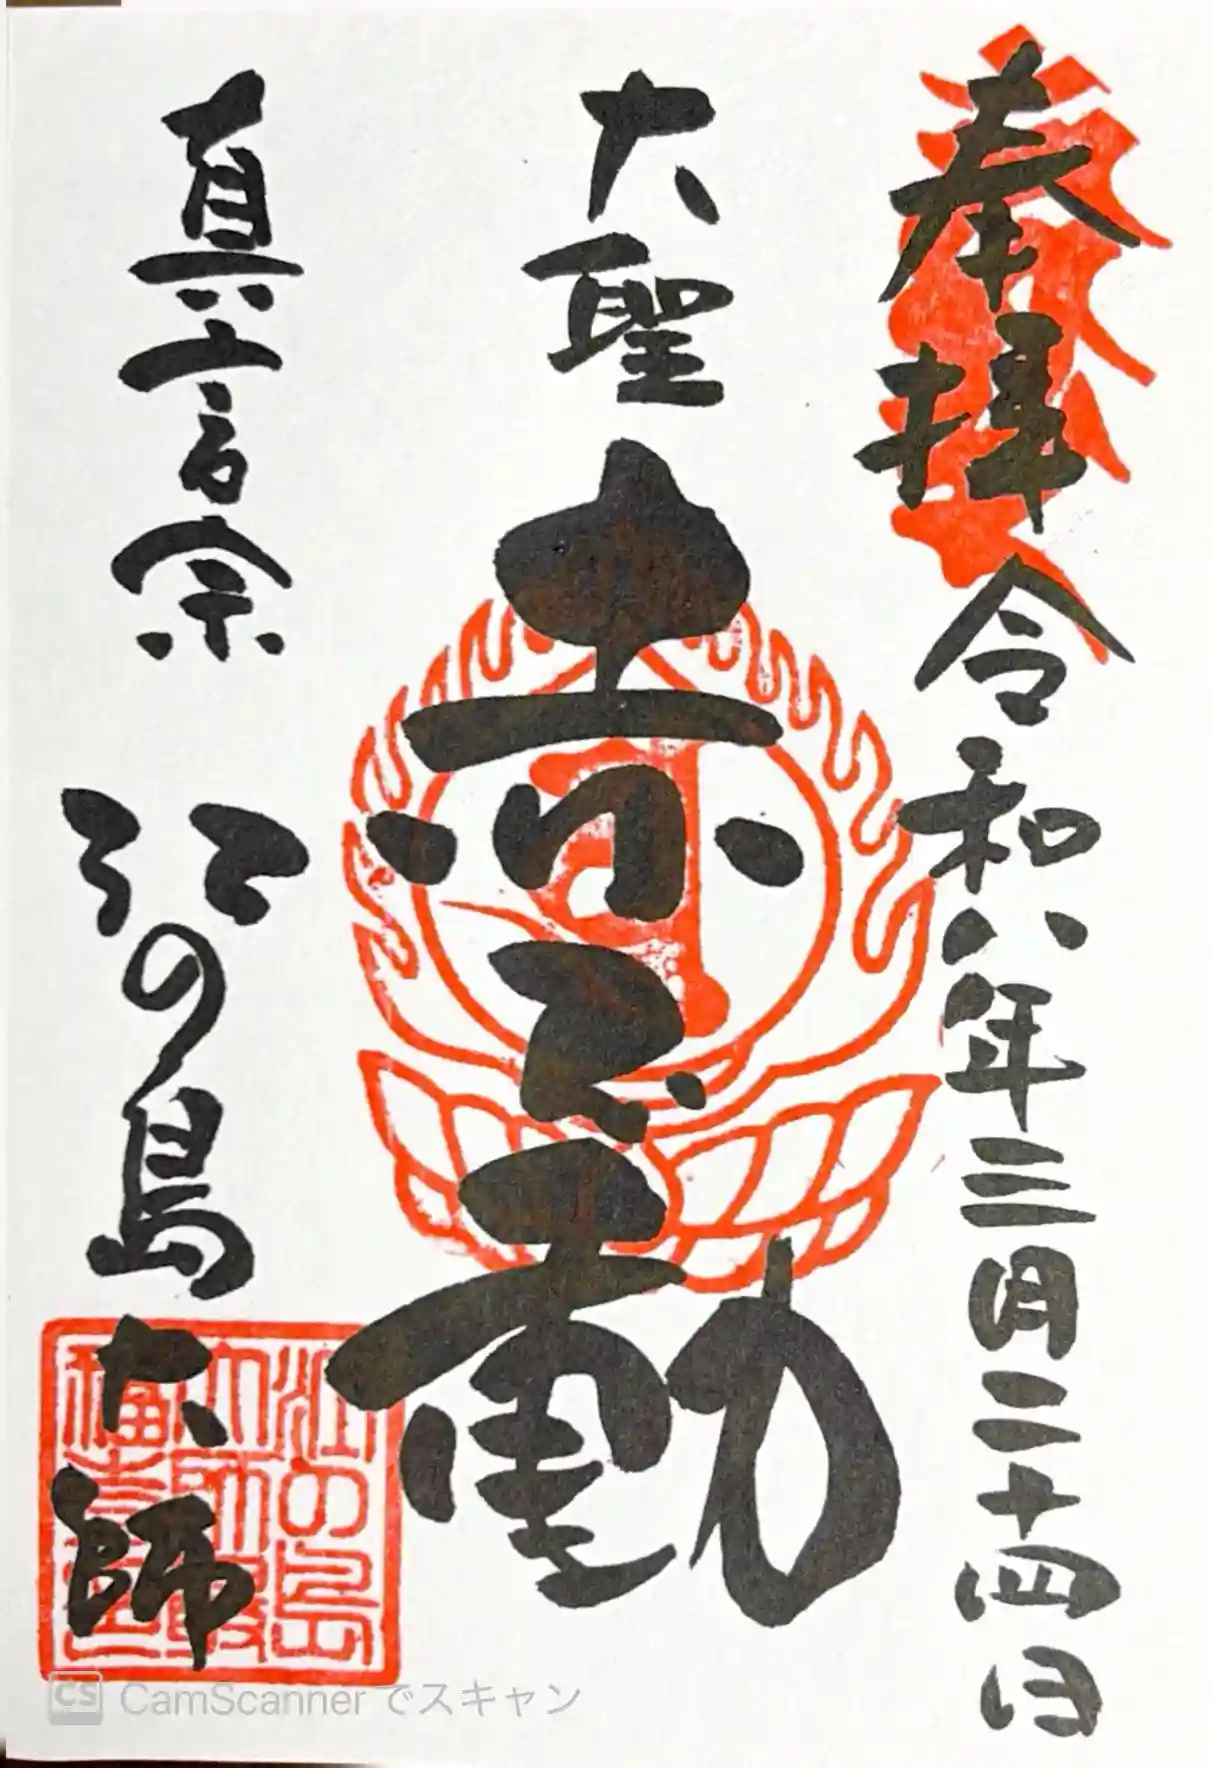 奉拝 令和八年三月二十四日
大聖
赤不動
真言宗
江の島大師
江の島
大師
CS CamScanner でスキャン